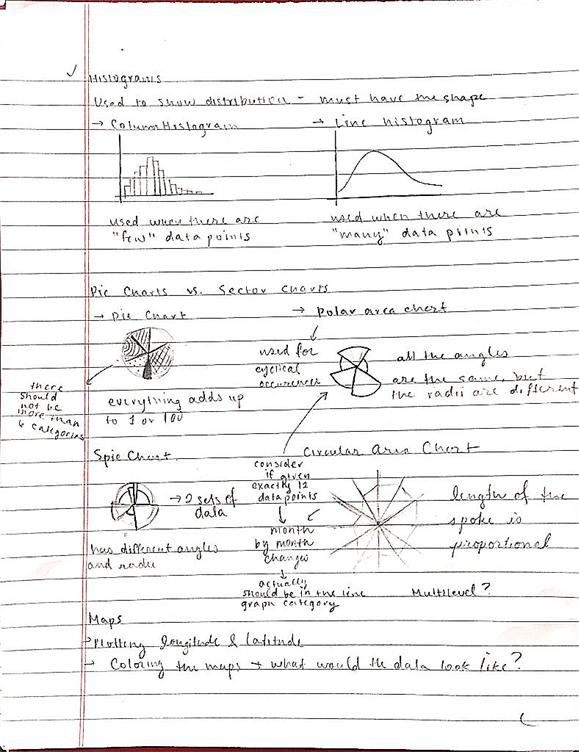 Histograms
Used to show distribution - must have the shape
→ Column Histogram → Line histogram
used when there are
"few" data points
used when there are
"many" data points
Pie Charts vs. Sector Charts
→ Pie Chart
→ polar area chart
there
should
not be
more than
6 categories
everything adds up
to 1 or 100
used for
cyclical
occurences
all the angles
are the same, but
the radii are different
Spie Chart
→ 2 sets of
data
has different angles
and radii
consider
if given
exactly 12
data points
month
by month
changes
actually
should be in the line
graph category
Circular Area Chart
length of the
spoke is
proportional
Multilevel?
Maps
→ Plotting longitude & latitude
→ Coloring the maps → what would the data look like?